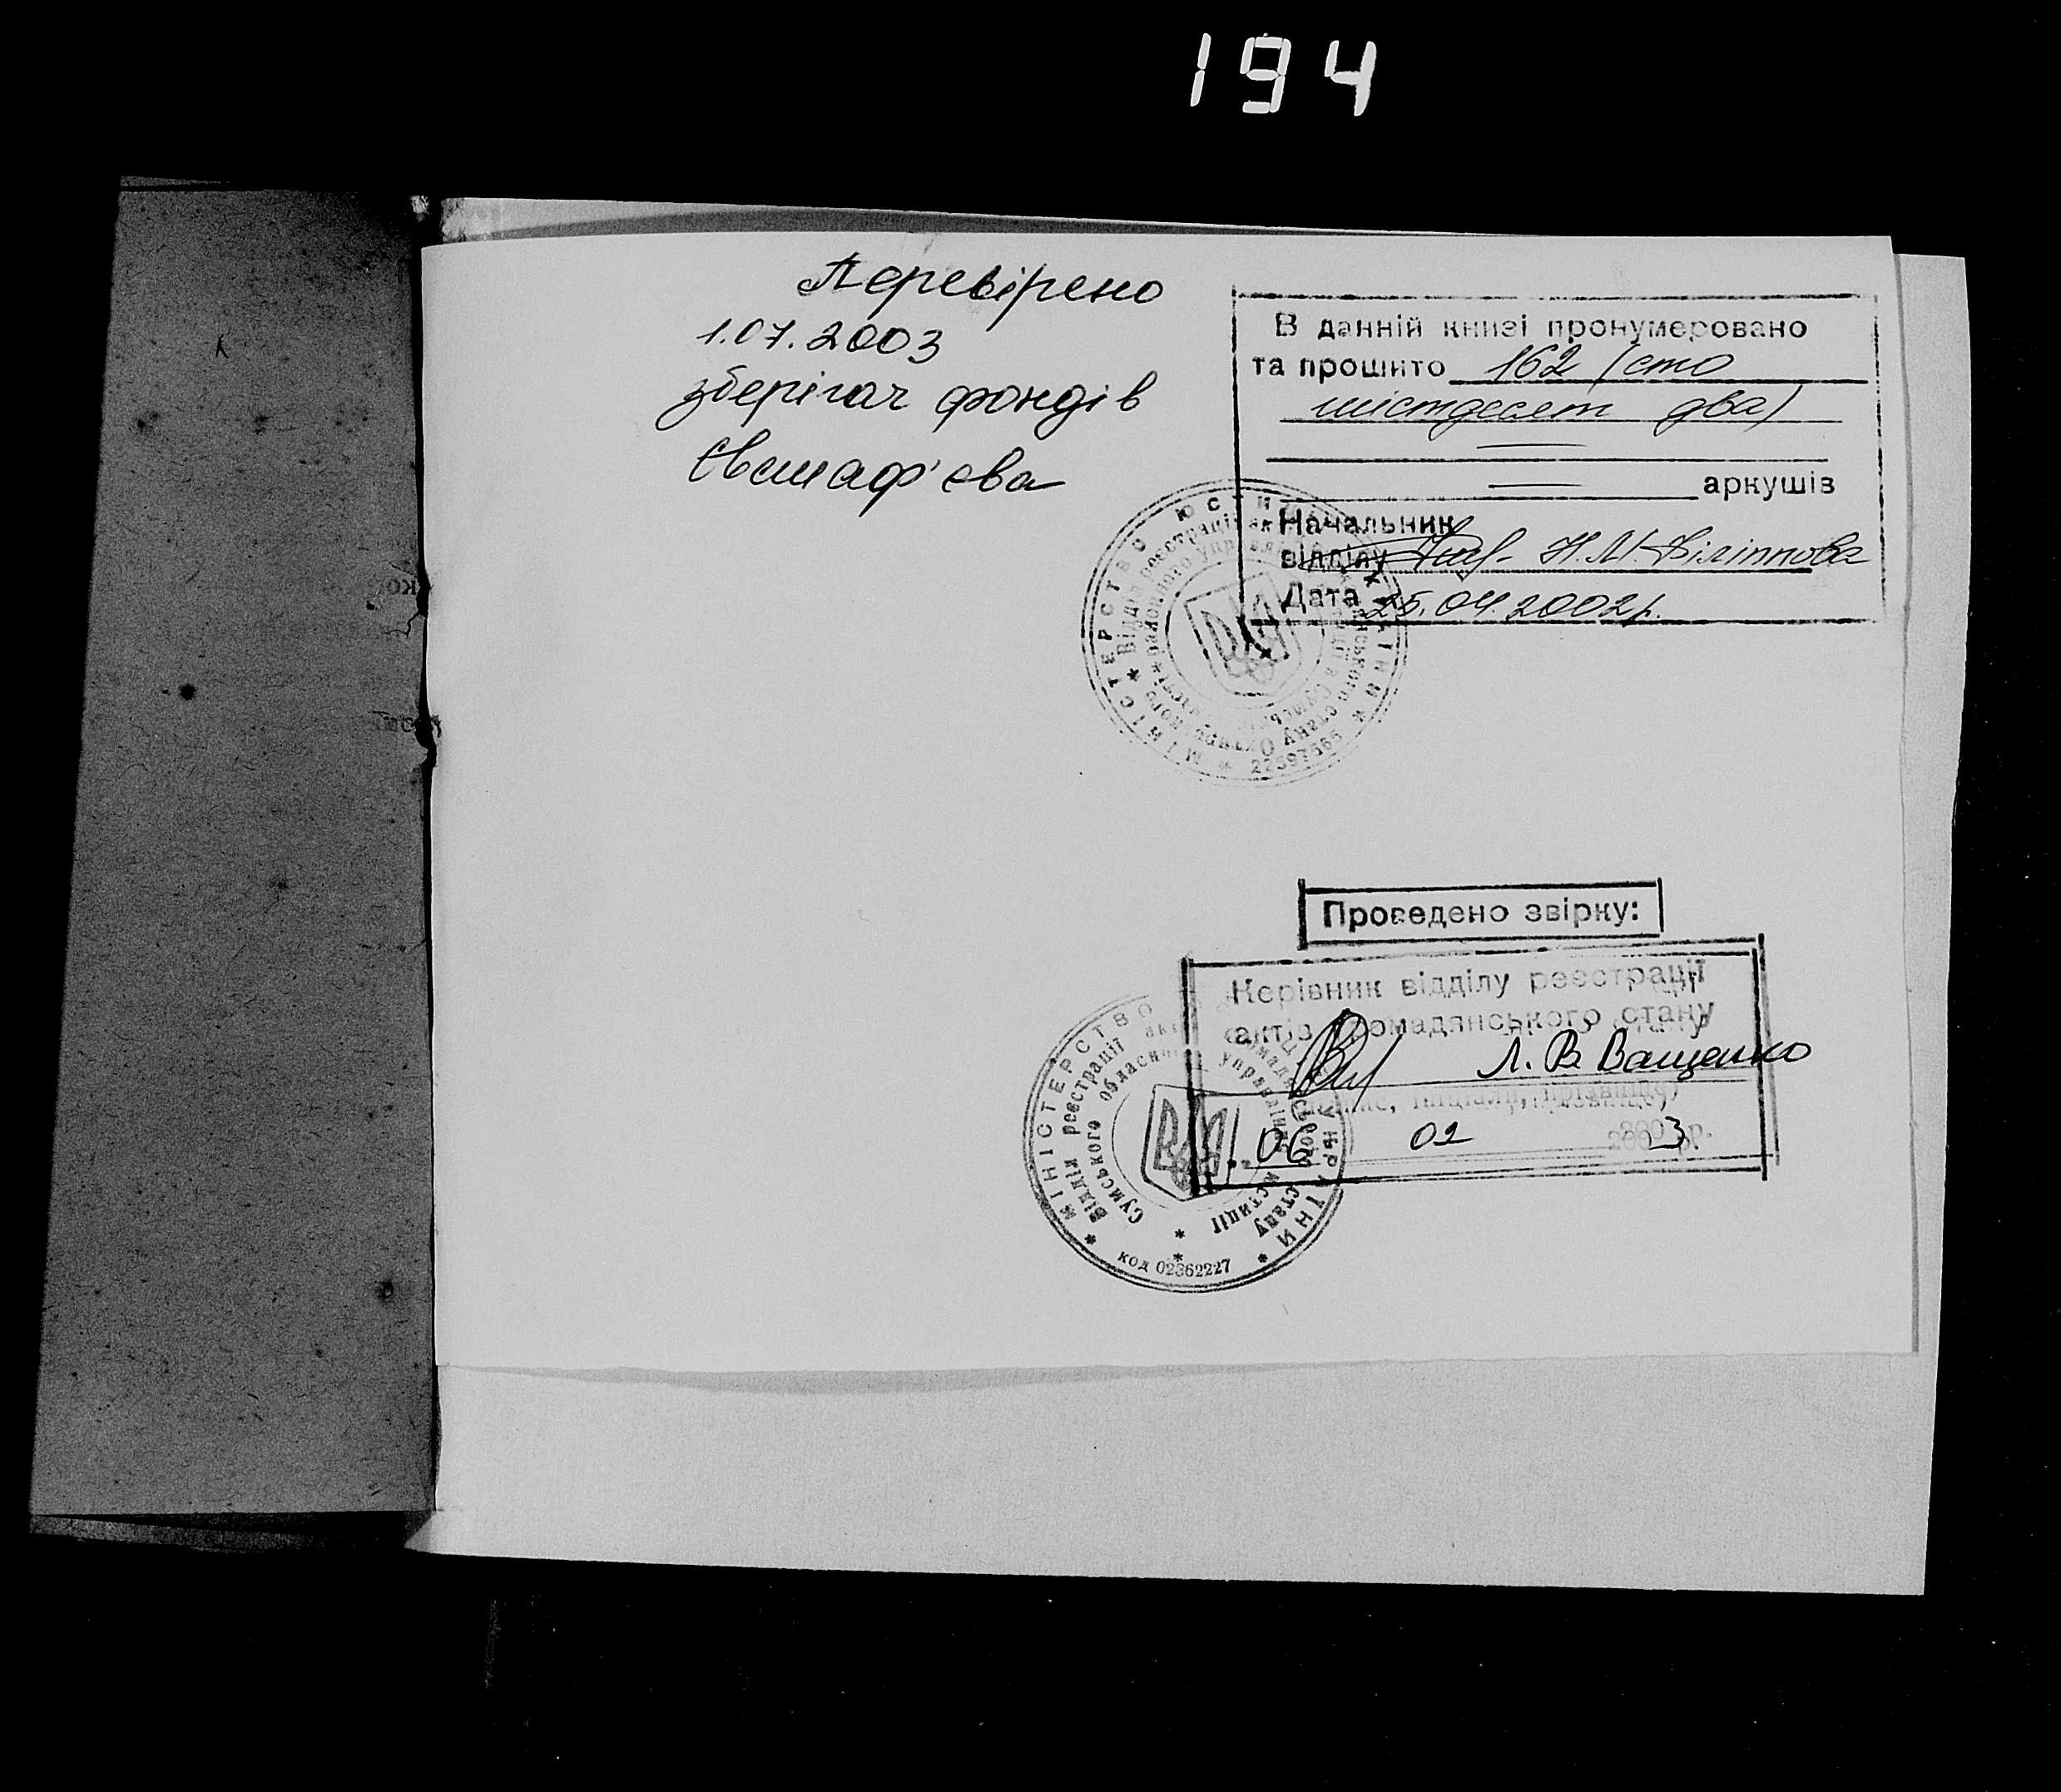 194
Перевірено
1.07.2003
зберігач фондів
Євстаф'єва
В данній книзі пронумеровано
та прошито 162 (сто
шістдесят два)
аркушів
Начальник
відділу Н.М. Філіппова
Дата 25.04.2002р.
МІНІСТЕРСТВО ЮСТИЦІЇ УКРАЇНИ
22597566
Проведено звірку:
Керівник відділу реєстрації
актів громадянського стану
Л.В. Ващенко
підпис, ініціали, прізвище
06 02 2003р.
МІНІСТЕРСТВО ЮСТИЦІЇ УКРАЇНИ
Відділ реєстрації актів громадянського стану
Сумського обласного управління юстиції
код 02362227